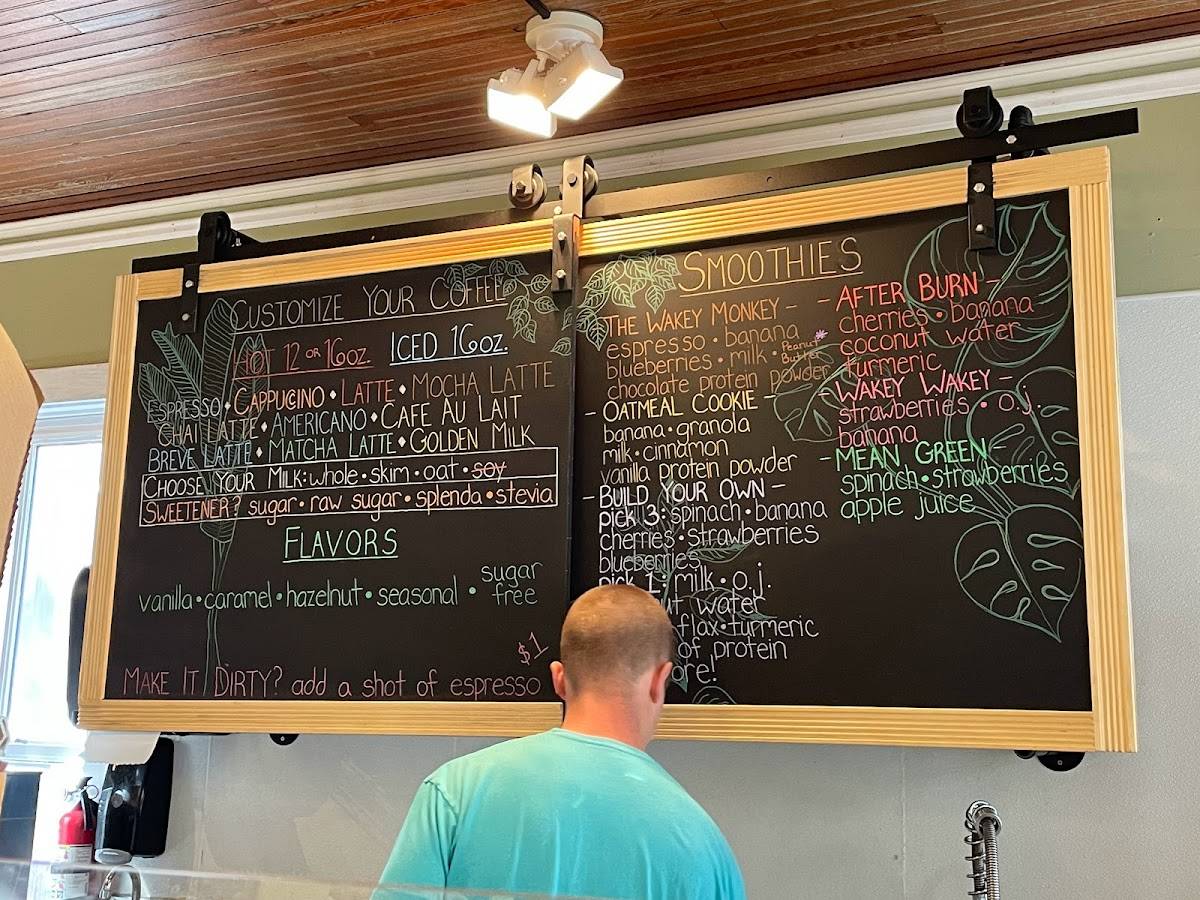 CUSTOMIZE YOUR COFFEE
HOT 12 OR 16oz. ICED 16oz.
ESPRESSO • CAPPUCINO • LATTE • MOCHA LATTE
CHAI LATTE • AMERICANO • CAFE AU LAIT
BREVE LATTE • MATCHA LATTE • GOLDEN MILK
CHOOSE YOUR MILK: whole • skim • oat • soy
SWEETENER? sugar • raw sugar • splenda • stevia
FLAVORS
vanilla • caramel • hazelnut • seasonal • sugar free
$1
MAKE IT DIRTY? add a shot of espresso
SMOOTHIES
THE WAKEY MONKEY -
espresso • banana
blueberries • milk • Peanut Butter
chocolate protein powder
- OATMEAL COOKIE -
banana • granola
milk • cinnamon
vanilla protein powder
- BUILD YOUR OWN -
pick 3: spinach • banana
cherries • strawberries
blueberries
pick 1: milk • o.j.
water
flax • turmeric
of protein
- AFTER BURN -
cherries • banana
coconut water
turmeric
- WAKEY WAKEY -
strawberries • o.j.
banana
- MEAN GREEN -
spinach • strawberries
apple juice